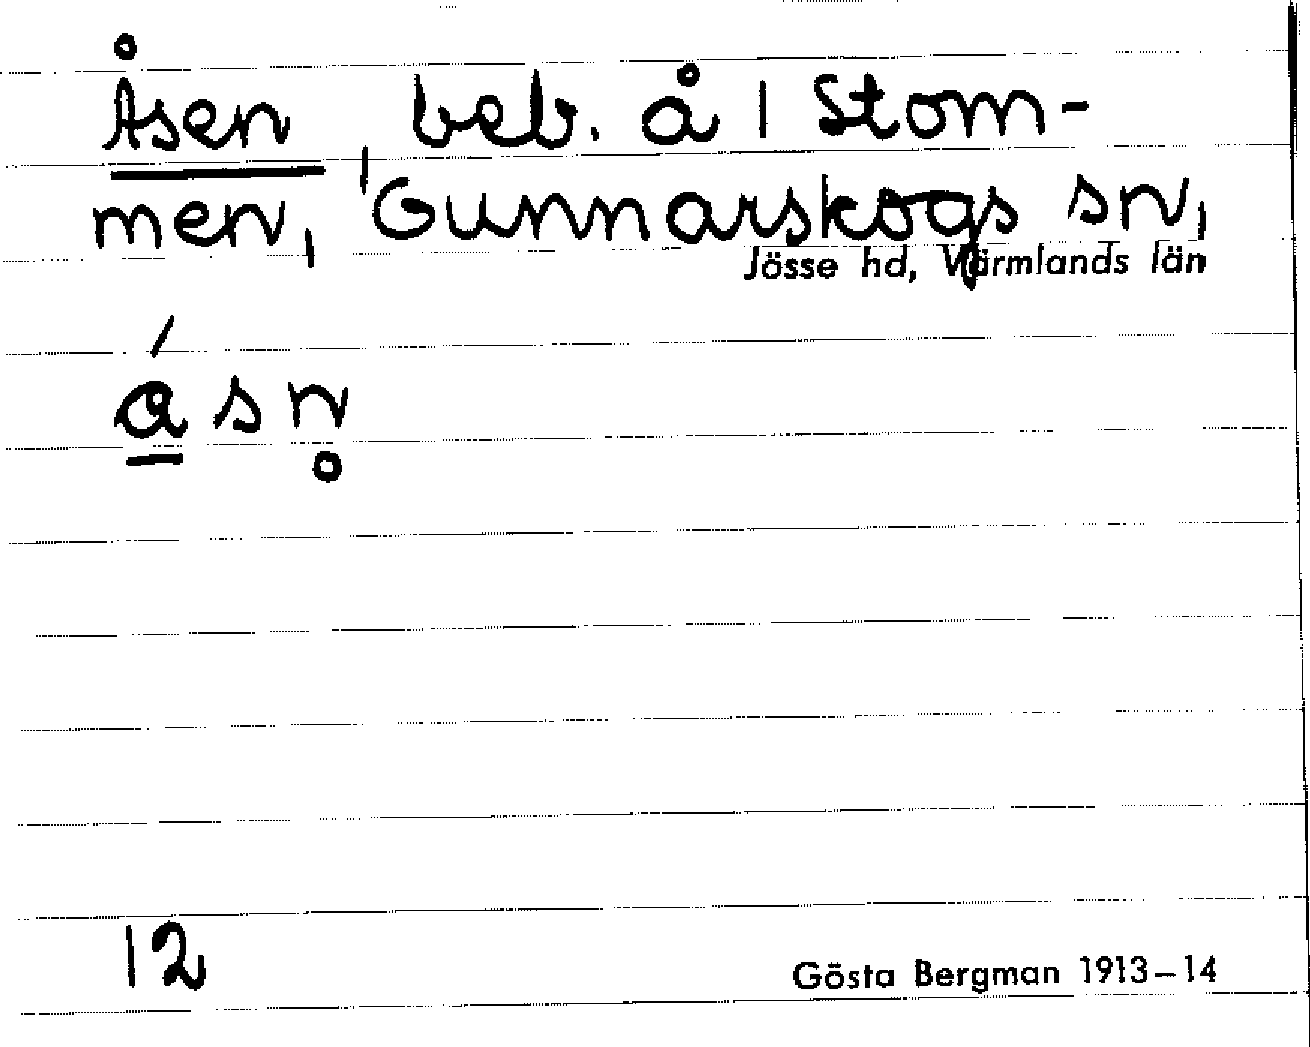 Åsen, beb. å 1 Stom-
men, Gunnarskogs sn,
Jösse hd, Värmlands län
á̱ s n̥
12
Gösta Bergman 1913–14